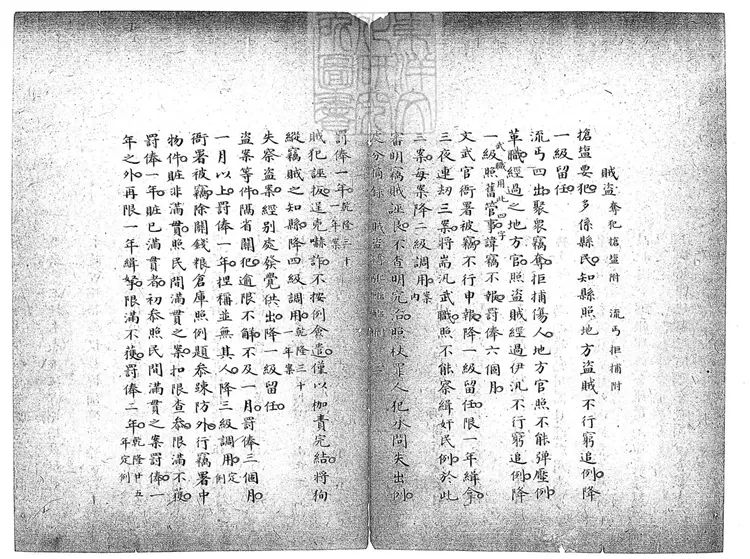 賊盜 奪犯搶盜附 流丐拒捕附
搶盜要犯多係縣民知縣照地方盜賊不行窮追例降
一級留任
流丐四出聚眾竊奪拒捕傷人地方官照不能彈壓例
革職經過之地方官照盜賊經過伊汛不行窮追例降
一級照舊管事諱竊不報罰俸六個月
武職用此四字
文武官衙署被竊不行申報降一級留任限一年緝拿
三夜連刼三案將耑汛武職照不能察緝奸民例於此
三案每案降二級調用
案內
審明竊賊誣良不查明究治照杖罪人犯承問失出例
處分備錄 賊盜
罰俸一年
乾隆三十一年案
賊犯誣扳逞兇嚇詐不按例僉遣僅以枷責完結將徇
縱竊賊之知縣降四級調用
乾隆三十一年案
失察盜案經別處發覺供出降一級留任
盜案等件隔省關犯逾限不解不及一月罰俸三個月
一月以上罰俸一年捏稱並無其人降三級調用
定例
衙署被竊除關錢粮倉庫照例題參疎防外行竊署中
物件賍非滿貫照民間滿貫之案扣限查參限滿不獲
罰俸一年賍已滿貫者初參照民間滿貫之案罰俸一
年之外再限一年緝拏限滿不獲罰俸二年
乾隆廿五年定例